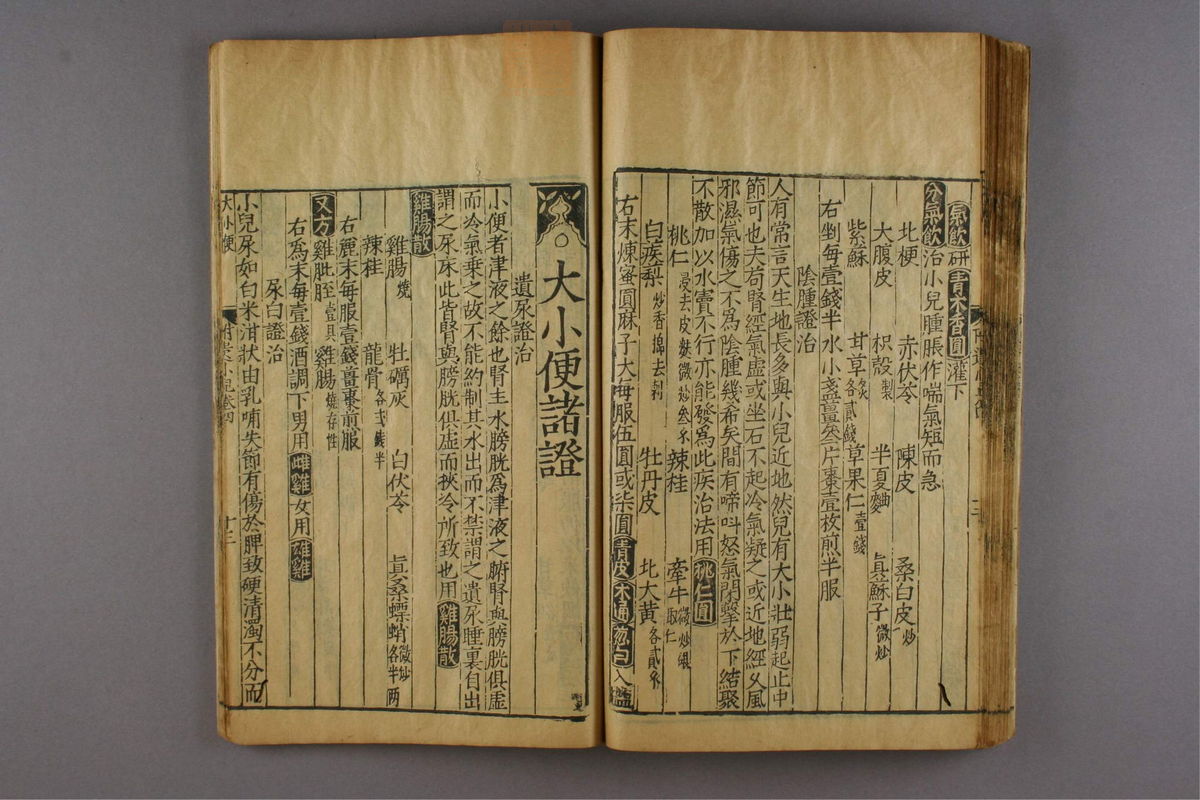 氣飲研青木香圓灌下
分氣飲治小兒腫脹作喘氣短而急
北梗 赤伏苓 陳皮 桑白皮炒
大腹皮 枳殼製 半夏麯 真蘇子微炒
紫蘇 甘草炙各貳錢 草果仁壹錢
右剉每壹錢半水小盞薑叄片棗壹枚煎半服
陰腫證治
人有常言天生地長多與小兒近地然兒有大小壯弱起止中
節可也夫苟腎經氣虛或坐石不起冷氣疑之或近地經久風
邪濕氣傷之不為陰腫幾希矣間有啼叫怒氣閉擊於下結聚
不散加以水竇不行亦能發為此疾治法用桃仁圓
桃仁浸去皮麩微炒叄分 辣桂 牽牛微炒取仁
白蒺梨炒香搗去刺 牡丹皮 北大黃各貳分
右末煉蜜圓麻子大每服伍圓或柒圓青皮木通葱白入鹽
大小便諸證
遺尿證治
小便者津液之餘也腎主水膀胱為津液之腑腎與膀胱俱虛
而冷氣乗之故不能約制其水出而不禁謂之遺尿睡裏自出
謂之尿床此皆腎與膀胱俱虛而挾冷所致也用雞腸散
雞腸散
雞腸燒 牡礪灰 白伏苓 真桑螵蛸微炒各半兩
辣桂 龍骨各貳錢半
右麄末每服壹錢薑棗煎服
又方雞肶胵壹具 雞腸燒存性
右為末每壹錢酒調下男用雌雞女用雄雞
尿白證治
小兒尿如白米泔狀由乳哺失節有傷於脾致硬清濁不分而
大小便
十三